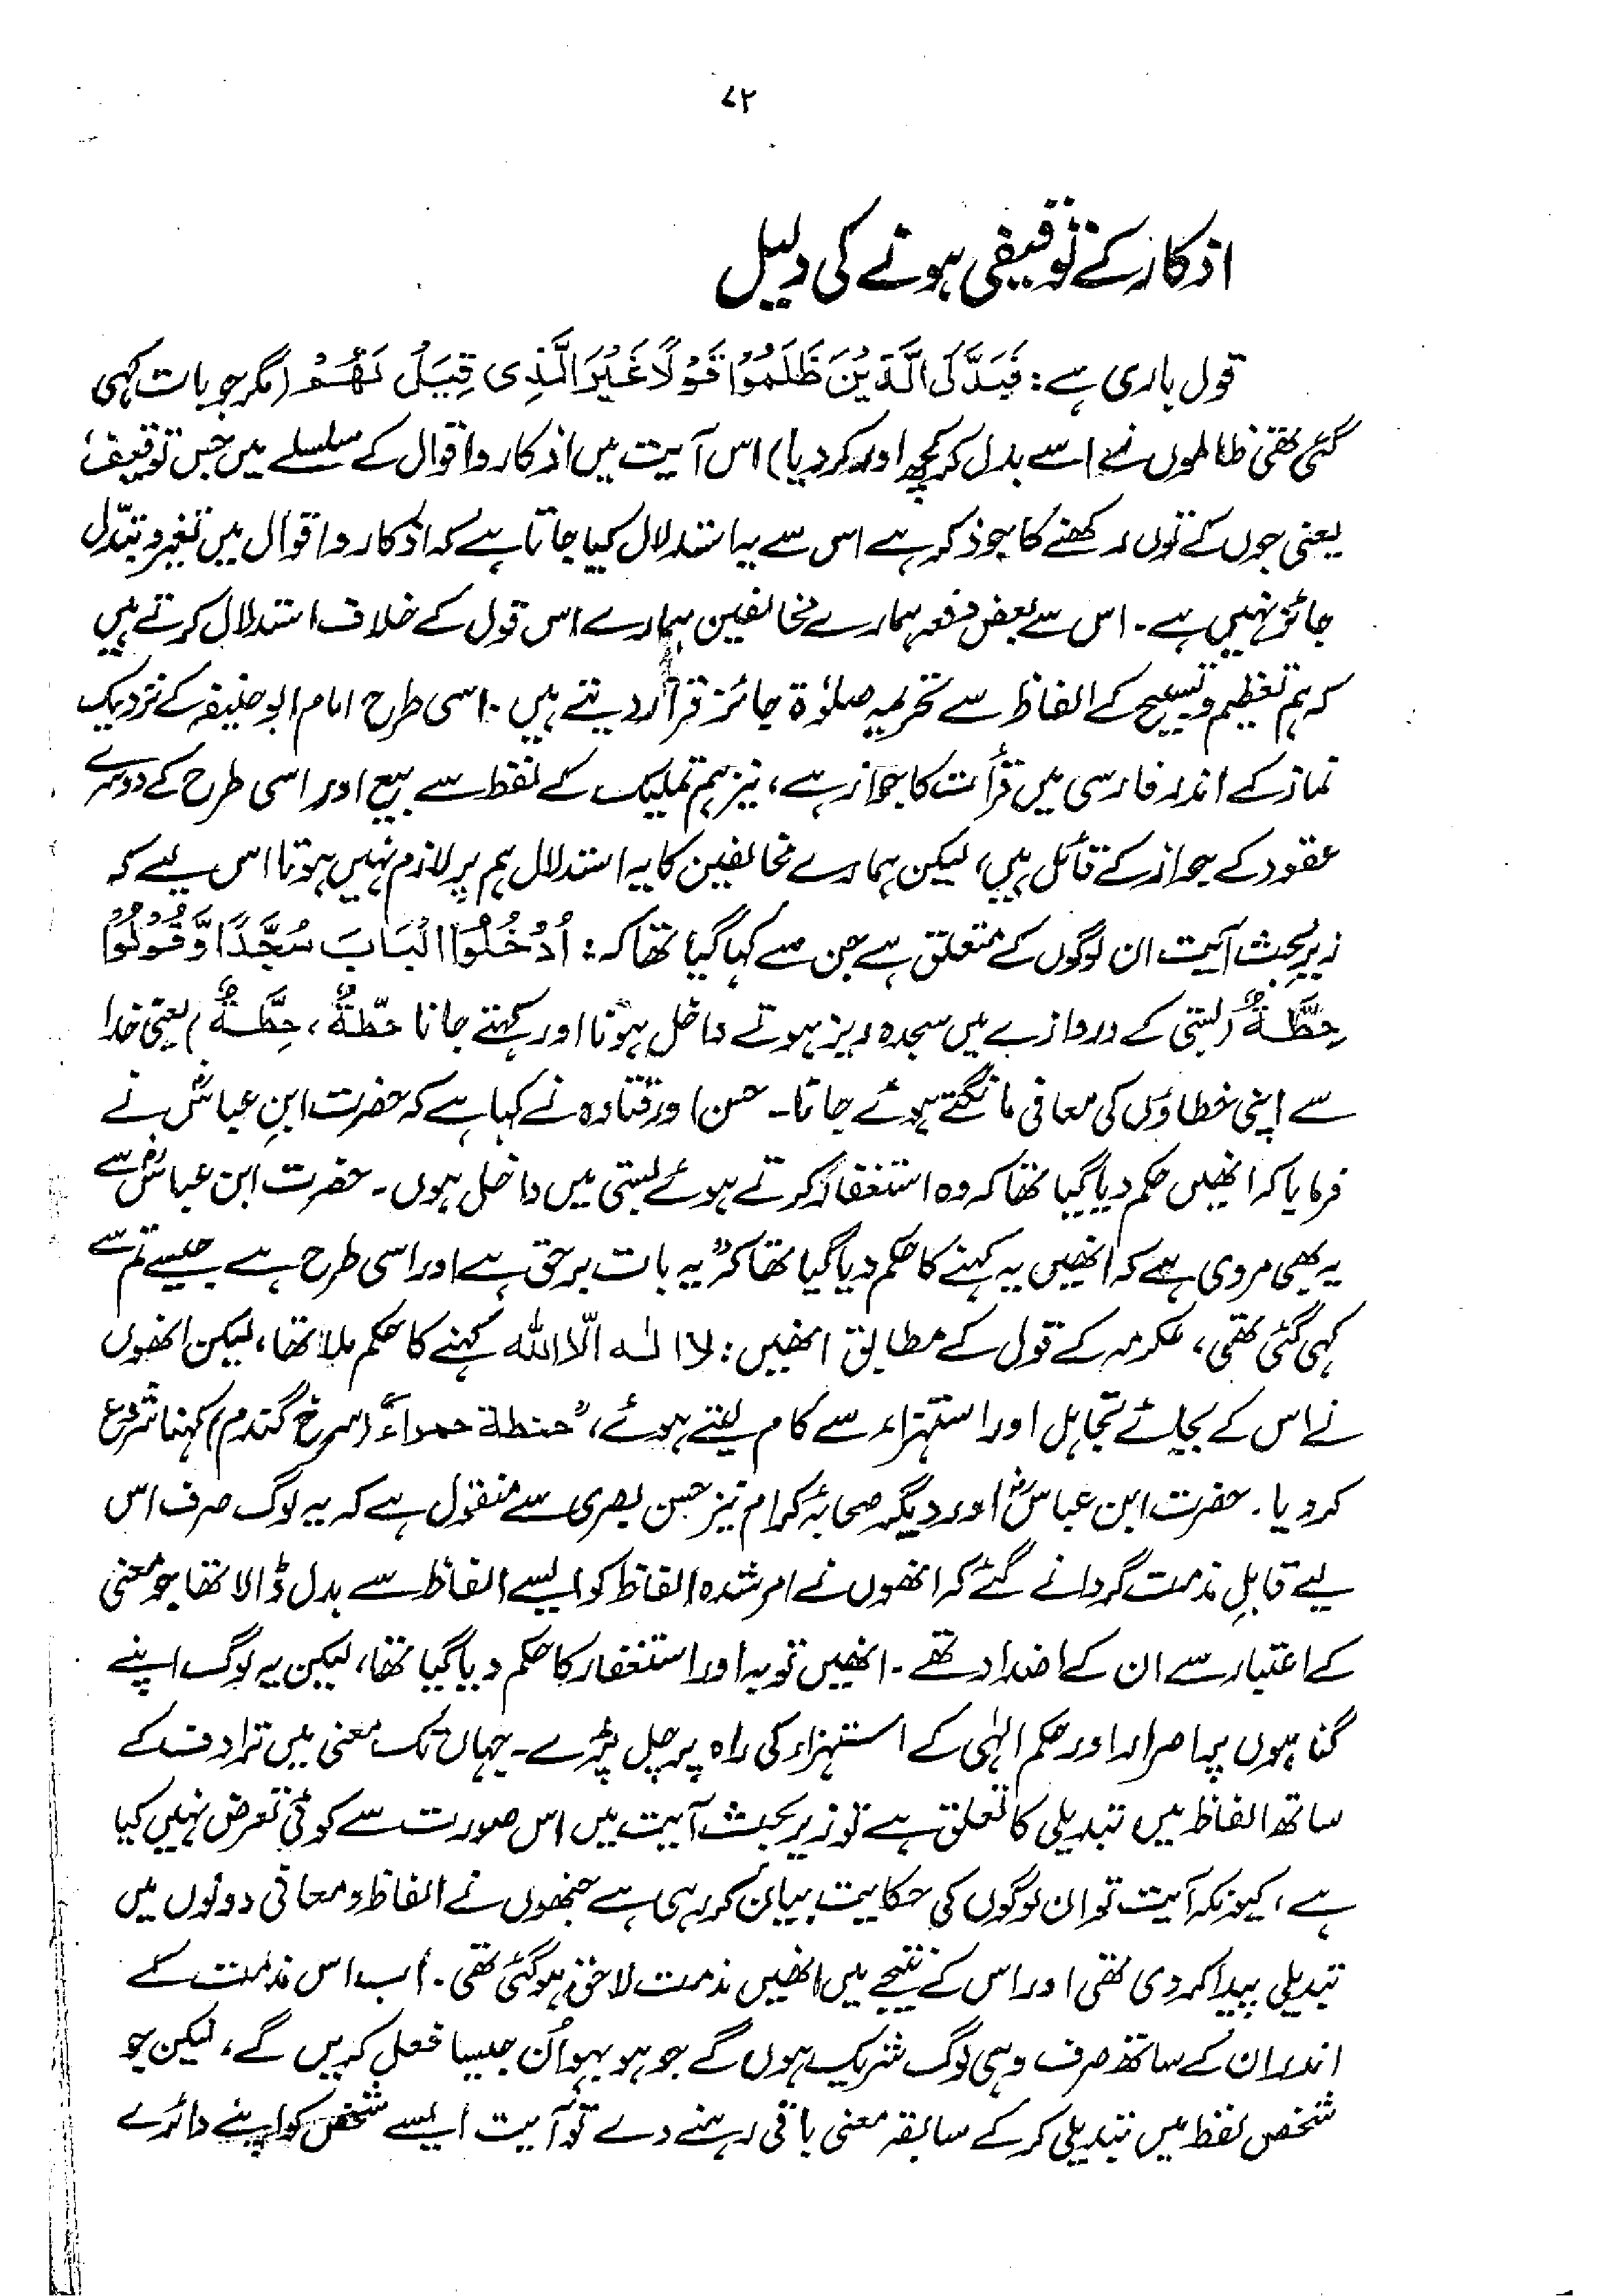 ۷۲
اذکار کے توقیفی ہونے کی دلیل
قول باری ہے: فَبَدَّلَ الَّذِیْنَ ظَلَمُوْا قَوْلًا غَیْرَ الَّذِی قِیْلَ لَھُمْ (مگر جو بات کہی
گئی تھی ظالموں نے اسے بدل کر کچھ اور کر دیا) اس آیت میں اذکار و اقوال کے سلسلے میں جس توقیف
یعنی جوں کے توں رکھنے کا جو ذکر ہے اس سے یہ استدلال کیا جاتا ہے کہ اذکار و اقوال میں تغیر و تبدّل
جائز نہیں ہے۔ اس سے بعض دفعہ ہمارے مخالفین ہمارے اس قول کے خلاف استدلال کرتے ہیں
کہ ہم تعظیم و تسبیح کے الفاظ سے تحریمہ صلوٰۃ جائز قرار دیتے ہیں۔ اسی طرح امام ابو حنیفہ کے نزدیک
نماز کے اندر فارسی میں قرأت کا جواز ہے، نیز ہم تملیک کے لفظ سے بیع اور اسی طرح کے دوسرے
عقود کے جواز کے قائل ہیں، لیکن ہمارے مخالفین کا یہ استدلال ہم پر لازم نہیں ہوتا اس لیے کہ
زیر بحث آیت ان لوگوں کے متعلق ہے جن سے کہا گیا تھا کہ: اُدْخُلُوا الْبَابَ سُجَّدًا وَّقُوْلُوْا
حِطَّۃٌ (بستی کے دروازے میں سجدہ ریز ہوتے داخل ہونا اور کہتے جانا حِطَّۃٌ، حِطَّۃٌ) یعنی خدا
سے اپنی خطاؤں کی معافی مانگتے ہوئے جانا۔ حسن اور قتادہ نے کہا ہے کہ حضرت ابنِ عباسؓ نے
فرمایا کہ انھیں حکم دیا گیا تھا کہ وہ استغفار کرتے ہوئے بستی میں داخل ہوں۔ حضرت ابن عباسؓ سے
یہ بھی مروی ہے کہ انھیں یہ کہنے کا حکم دیا گیا تھا کہ "یہ بات برحق ہے اور اسی طرح ہے جیسے تم سے
کہی گئی تھی، عکرمہ کے قول کے مطابق انھیں: لا الٰہ الّا اللہ کہنے کا حکم ملا تھا، لیکن انھوں
نے اس کے بجائے تجاہل اور استہزاء سے کام لیتے ہوئے، "حنطۃ حمراء" (سرخ گندم) کہنا شروع
کر دیا۔ حضرت ابن عباسؓ اور دیگر صحابۂ کرام نیز حسن بصری سے منقول ہے کہ یہ لوگ صرف اس
لیے قابلِ مذمت گردانے گئے کہ انھوں نے امر شدہ الفاظ کو ایسے الفاظ سے بدل ڈالا تھا جو معنی
کے اعتبار سے ان کے اضداد تھے۔ انھیں توبہ اور استغفار کا حکم دیا گیا تھا، لیکن یہ لوگ اپنے
گناہوں پر اصرار اور حکم الٰہی کے استہزاء کی راہ پر چل پڑے۔ جہاں تک معنی میں ترادف کے
ساتھ الفاظ میں تبدیلی کا تعلق ہے تو زیر بحث آیت میں اس صورت سے کوئی تعرض نہیں کیا
ہے، کیونکہ آیت تو ان لوگوں کی حکایت بیان کر رہی ہے جنھوں نے الفاظ و معانی دونوں میں
تبدیلی پیدا کر دی تھی اور اس کے نتیجے میں انھیں مذمت لاحق ہو گئی تھی۔ اب اس مذمت کے
اندر ان کے ساتھ صرف وہی لوگ شریک ہوں گے جو ہو بہو اُن جیسا فعل کریں گے، لیکن جو
شخص لفظ میں تبدیلی کر کے سابقہ معنی باقی رہنے دے تو آیت ایسے شخص کو اپنے دائرے